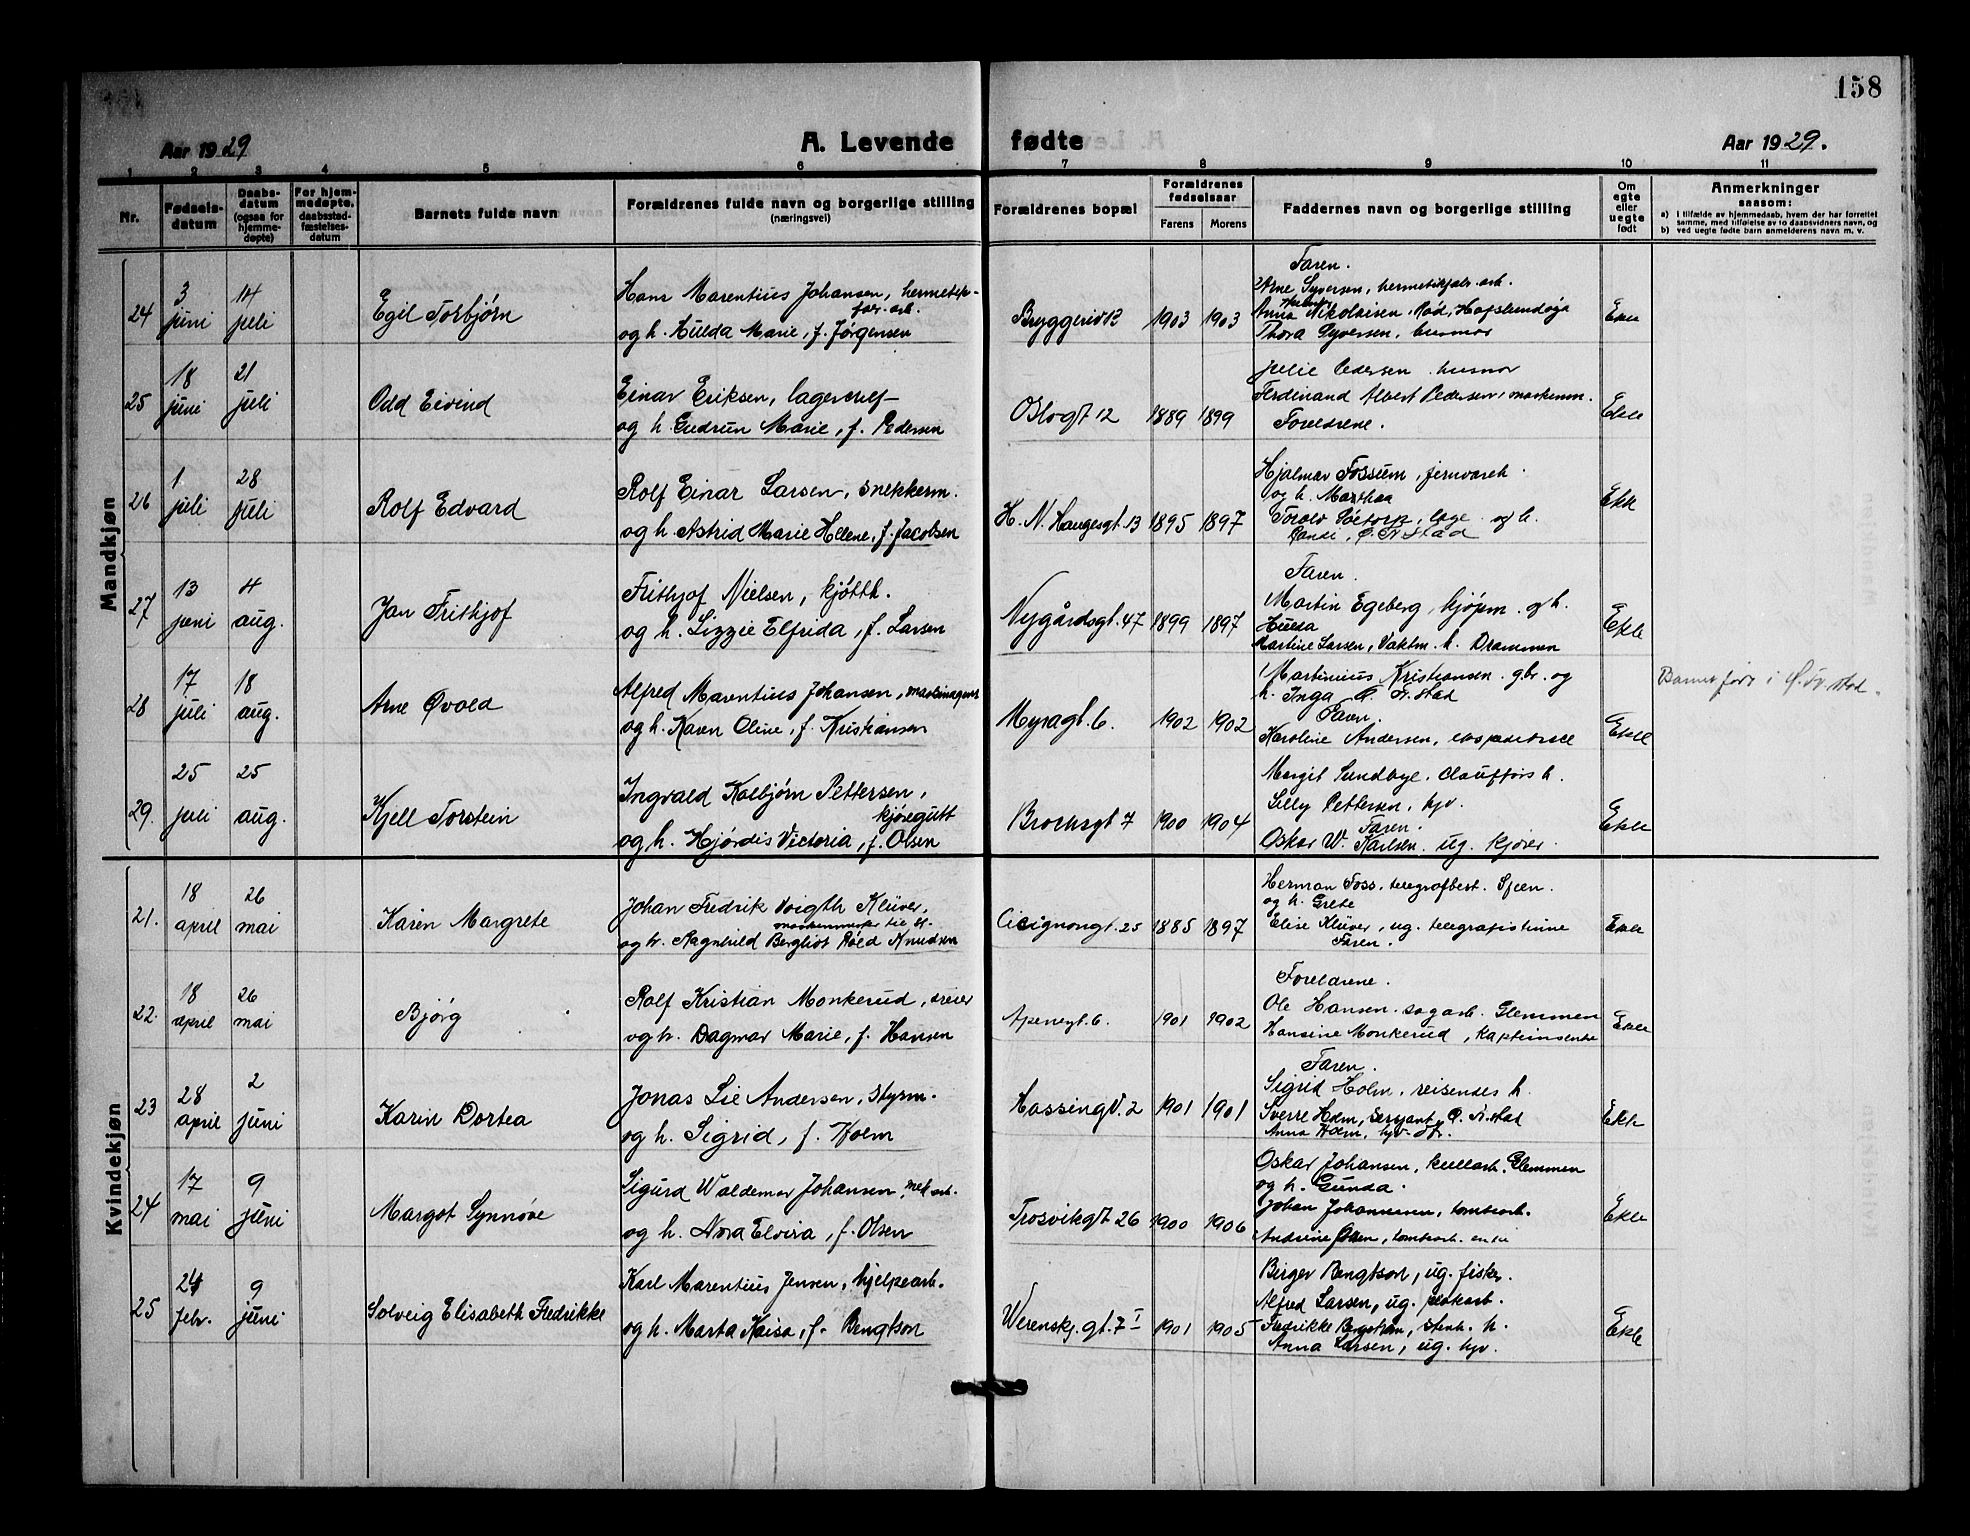 158
Aar 1929
A. Levende fødte
Aar 1929.
1 2 3 4 5 6 7 8 9 10 11
Nr.
Fødsels-
datum
Daabs-
datum
(ogsaa for
hjemme-
døpte)
For hjem-
medøpte,
daabsstad-
fæstelses-
datum
Barnets fulde navn
Forældrenes fulde navn og borgerlige stilling
(næringsvei)
Forældrenes bopæl
Forældrenes
fødselsaar
Farens Morens
Faddernes navn og borgerlige stilling
Om
egte
eller
uegte
født
Anmerkninger
saasom:
a) i tilfælde av hjemmedaab, hvem der har forrettet
samme, med tilføielse av to daabsvidners navn, og
b) ved uegte fødte barn anmelderens navn m. v.
Mandkjøn
24
3
juni
14
juli
Egil Torbjørn
Hans Marentius Johansen, hermetik-
fabr. arb.
og h. Hulda Marie, f. Jørgensen
Bryggeriv 12
1903 1903
Faren.
Arne Syversen, hermetikfabr. arb.
Anna Nikolaisen, Rød, Hafslundsøy
Thora Syversen, husmor
Ekte
25
18
juni
21
juli
Odd Eivind
Einar Eriksen, lagerchef
og h. Gudrun Marie, f. Pedersen
Oslogt 12
1889 1899
Julie Pedersen husmor
Ferdinand Albert Pedersen, maskinm.
Foreldrene.
Ekte
26
1
juli
28
juli
Rolf Edvard
Rolf Einar Larsen, snekkerm.
og h. Astrid Marie Helene, f. Jacobsen
H. N. Haugesgt. 13
1895 1897
Hjalmar Fossum, jernvareh.
og h. Marthea
Torolv og h.
Ø. Fr. stad
Ekte
27
13
juni
4
aug.
Jan Frithjof
Frithjof Nielsen, kjøtth.
og h. Lizzie Elfrida, f. Larsen
Nygårdsgt. 47
1899 1897
Faren.
Martin Egeberg, kjøpm. og h.
Hulda
Martine Larsen, vaktm. h. Drammen
Ekte
28
17
juli
18
aug.
Arne Øvald
Alfred Marentius Johansen,
og h. Karen Oline, f. Kristiansen
Myragt. 6.
1902 1902
Martinius Kristiansen gbr. og
h. Inga, Ø. Fr. stad
Faren.
Karoline Andersen, ekspeditrice
Ekte
Barnet født i Ø. Fr. stad.
29.
25
juli
25
aug.
Kjell Torstein
Ingvald Kolbjørn Pettersen,
kjøregutt
og h. Hjørdis Victoria, f. Olsen
Brochsgt 7
1900 1904
Margit Sundbye, chaufførs h.
Lilly Pettersen, hjv.
Faren.
Oskar W. Karlsen, ug. kjører.
Ekte
Kvindekjøn
21.
18
april
26
mai
Karen Margrete
Johan Fredrik Voigth Klüver,
og h. Ragnhild Bergliot Røld Knudsen
Cicignongt. 25
1885 1897
Herman Foss, telegrafbest. Skien.
og h. Grete
Elise Klüver, ug. telegrafistinne
Faren.
Ekte
22.
18
april
26
mai
Bjørg
Rolf Kristian Monkerud, dreier
og h. Dagmar Marie, f. Hansen
Apenesgt. 6.
1901 1902
Foreldrene.
Ole Hansen. sagarb. Glemmen
Hansine Monkerud, kapteinsenke
Ekte
23
28
april
2
juni
Karin Dortea
Jonas Lie Andersen, styrm.
og h. Sigrid, f. Holm
Hassingv. 2
1901 1901
Faren.
Sigrid Holm, reisendes h.
Sverre Holm, sersjant, Ø. Fr. stad
Anna Holm, hjv.
Ekte
24
17
mai
9
juni
Margot Synnøve
Sigurd Waldemar Johansen, mek arb.
og h. Nora Elvira, f. Olsen
Trosvikgt 26
1900 1906
Oskar Johansen, kullarb. Glemmen
og h. Gunda.
Johan Johannesen, tomtearb.
Andrine Olsen, tomtearb. enke
Ekte
25
24
febr.
9
juni
Solveig Elisabeth Fredrikke
Karl Marentius Jensen, hjelpearb.
og h. Marta Kaisa, f. Bengtson
Werenskj. gt. 7 I
1901 1905
Birger Bengtson, ug. fisker.
Alfred Larsen, ug.
Fredrikke Bengtson, stenh. h.
Anna Larsen, ug. hjv.
Ekte